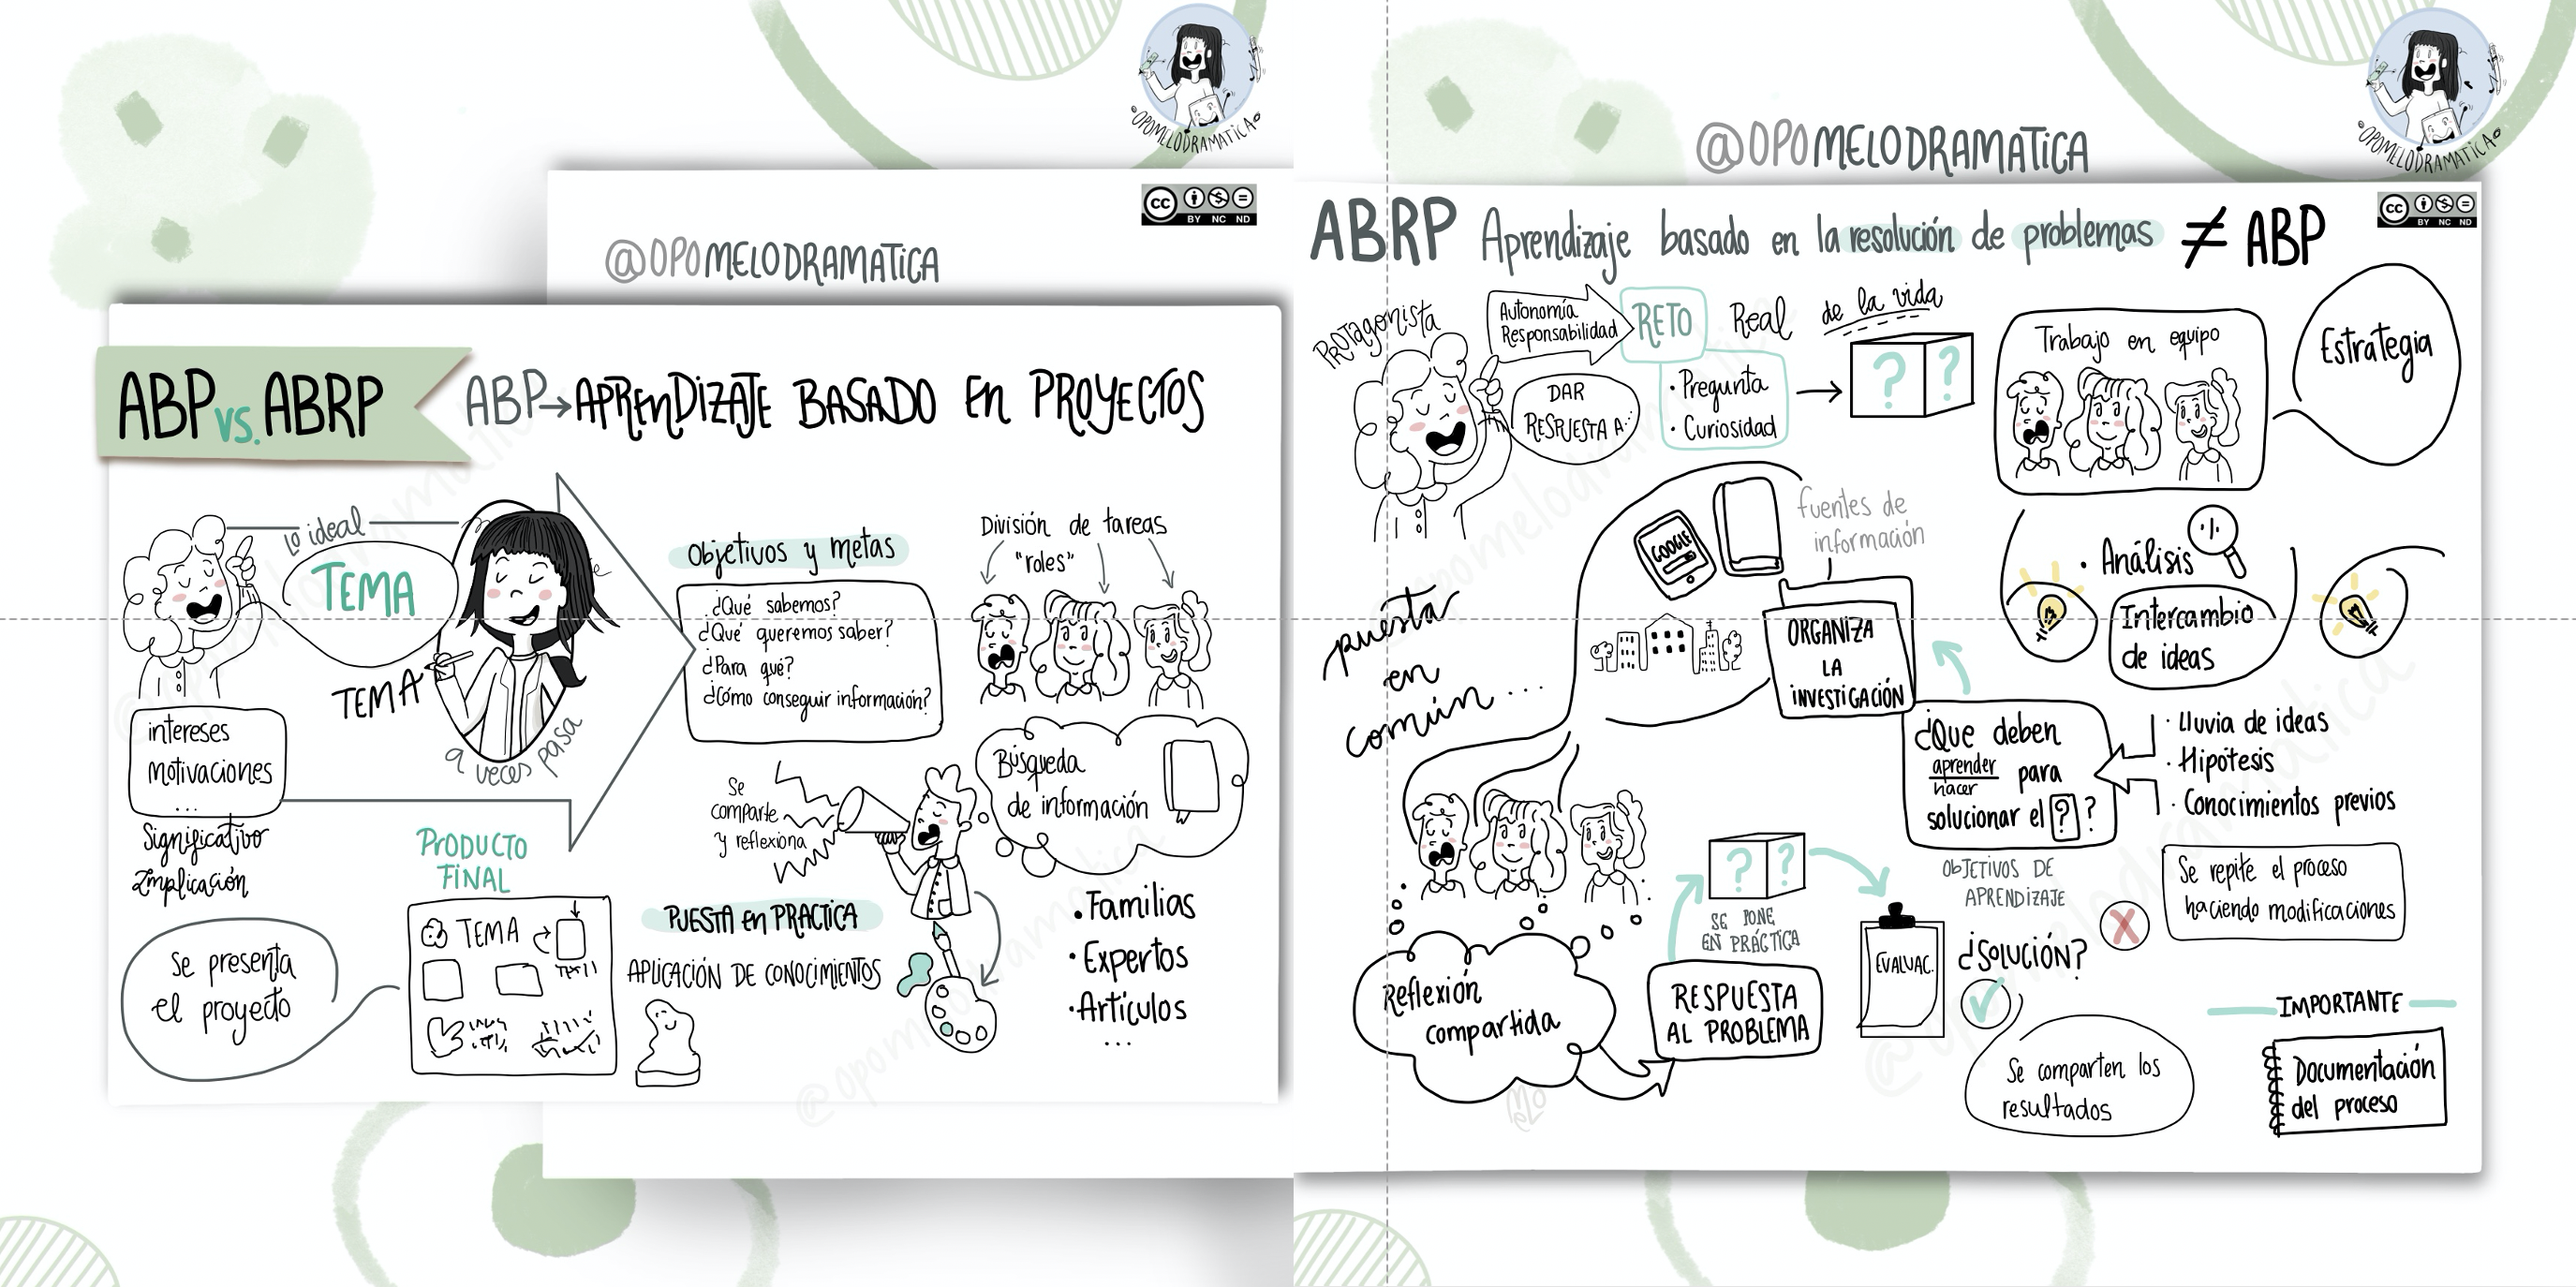 °OPOMELODRAMATICA°
CC BY NC ND
@OPOMELODRAMATICA
ABP vs. ABRP
ABP→APRENDIZAJE BASADO EN PROYECTOS
lo ideal
TEMA
TEMA
a veces pasa
intereses
motivaciones
...
Significativo
Implicación
Objetivos y metas
¿Qué sabemos?
¿Qué queremos saber?
¿Para qué?
¿Cómo conseguir información?
División de tareas
"roles"
Búsqueda
de información
• Familias
• Expertos
• Artículos
...
Se
comparte
y reflexiona
PUESTA en PRACTICA
APLICACIÓN DE CONOCIMIENTOS
PRODUCTO
FINAL
TEMA
Se presenta
el proyecto
@opomelodramatica
°OPOMELODRAMATICA°
@OPOMELODRAMATICA
CC BY NC ND
ABRP Aprendizaje basado en la resolución de problemas ≠ ABP
Protagonista
Autonomía
Responsabilidad
RETO
Real
de la vida
DAR
RESPUESTA A:
• Pregunta
• Curiosidad
? ?
Trabajo en equipo
Estrategia
• Análisis
Intercambio
de ideas
· Lluvia de ideas
· Hipótesis
· Conocimientos previos
¿Que deben
aprender
hacer
para
solucionar el ? ?
OBJETIVOS DE
APRENDIZAJE
fuentes de
información
GOOGLE
ORGANIZA
LA
INVESTIGACIÓN
puesta
en
común...
Reflexión
compartida
RESPUESTA
AL PROBLEMA
SE PONE
EN PRÁCTICA
? ?
EVALUAC.
¿SOLUCIÓN?
X
Se repite el proceso
haciendo modificaciones
Se comparten los
resultados
IMPORTANTE
Documentación
del proceso
@opomelodramatica